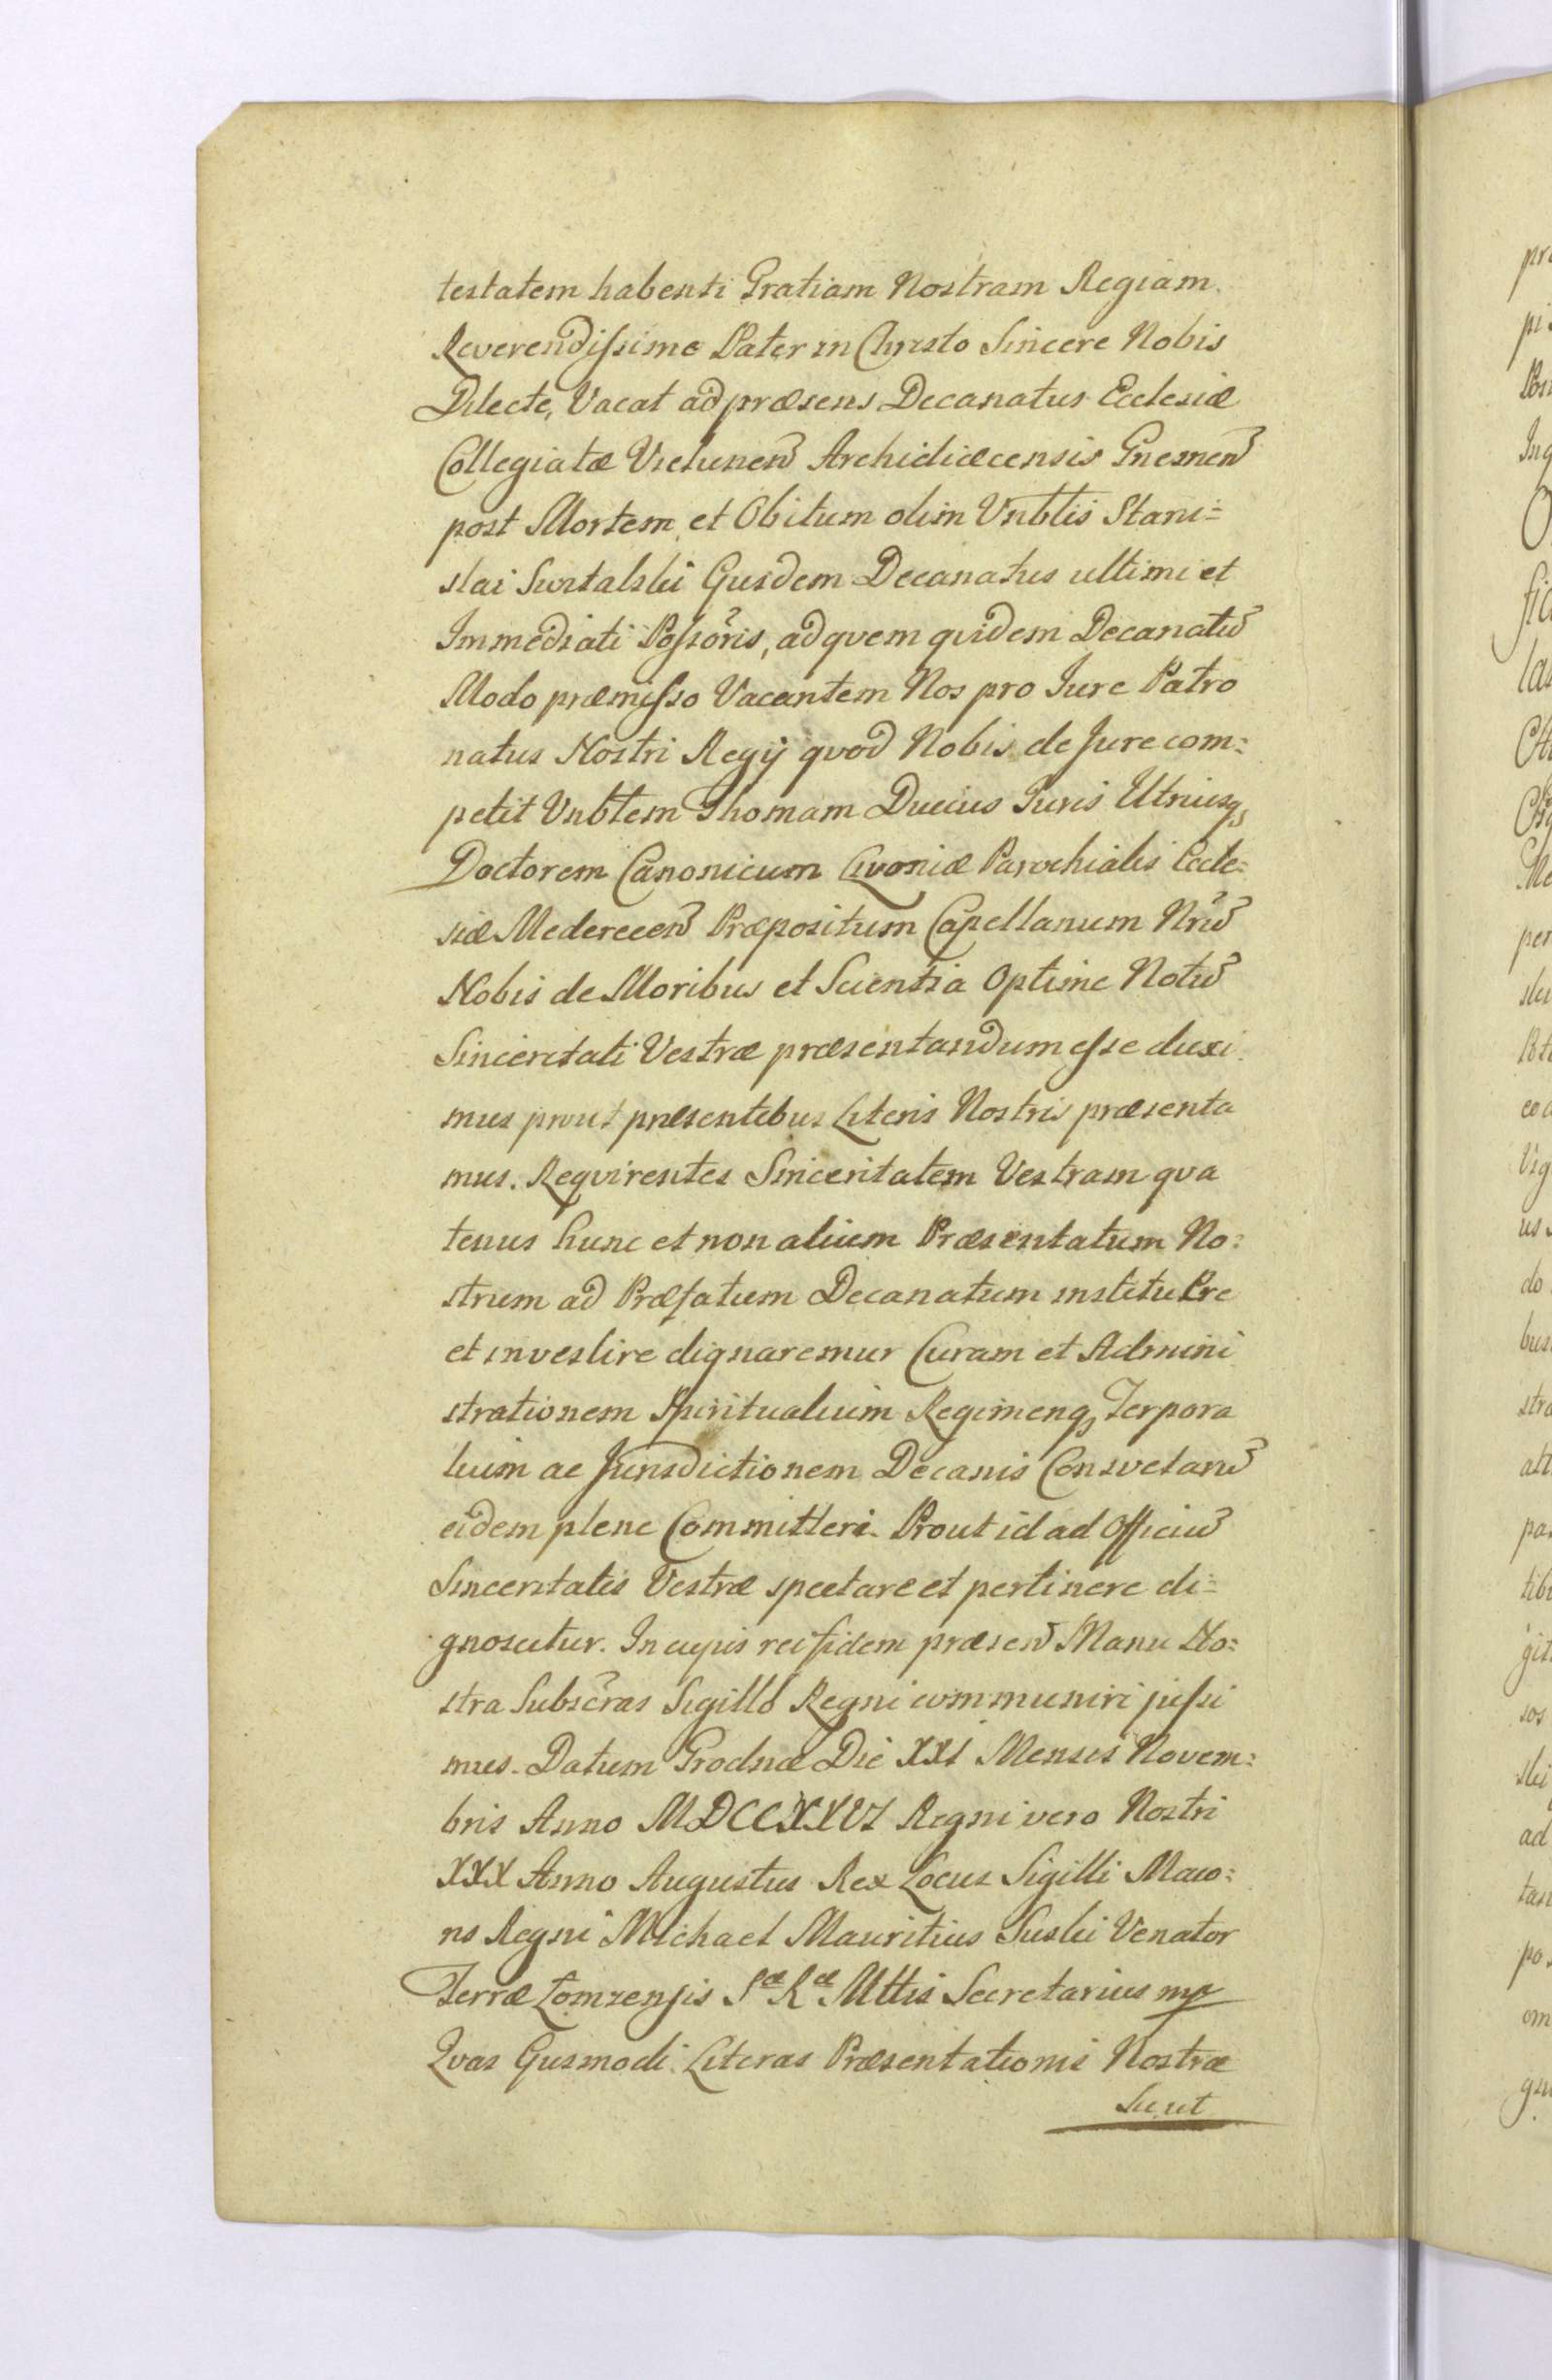 testatem habenti Gratiam Nostram Regiam.
Reverendissime Pater in Christo Sincere Nobis
Dilecte, Vacat ad præsens Decanatus Ecclesiæ
Collegiatæ Vielunen̄ Archidiæcensis Gnesnen̄
post Mortem et Obitum olim Vnblis Stani=
slai Switalski Ejusdem Decanatus ultimi et
Immediati Possoris, ad qvem qvidem Decanatū
Modo præmisso Vacantem Nos pro Jure Patro
natus Nostri Regij qvod Nobis de Jure com=
petit Vnblem Thomam Ducius Juris Utriusq;
Doctorem Canonicum Livoniæ Parochialis Eccle=
siæ Præpositum Capellanum Nrū
Nobis de Moribus et Scientia Optime Notū
Sinceritati Vestræ præsentandum esse duxi
mus prout præsentibus Literis Nostris præsenta
mus. Reqvirentes Sinceritatem Vestram qva
tenus hunc et non alium Præsentatum No=
strum ad Præfatum Decanatum instituere
et investire dignaremur Curam et Admini
strationem Spiritualium Regimenq; Terpora
lium ac Jurisdictionem Decanis Consvetanū
eidem plene Committeri. Prout id ad Officiū
Sinceritatis Vestræ spectare et pertinere di=
gnoscitur. In cujus rei fidem præsen̄ Manu No=
stra Subscras Sigillo Regni communiri jussi
mus. Datum Grodnæ Die XXI Mensis Novem=
bris Anno MDCCXXVI Regni vero Nostri
XXX Anno Augustus Rex Locus Sigilli Maio=
ris Regni Michael Mauritius Suski Venator
Terræ Łomzensis Sæ Ræ Mttis Secretarius mp
Qvas Ejusmodi Literas Præsentationis Nostræ
Sicut